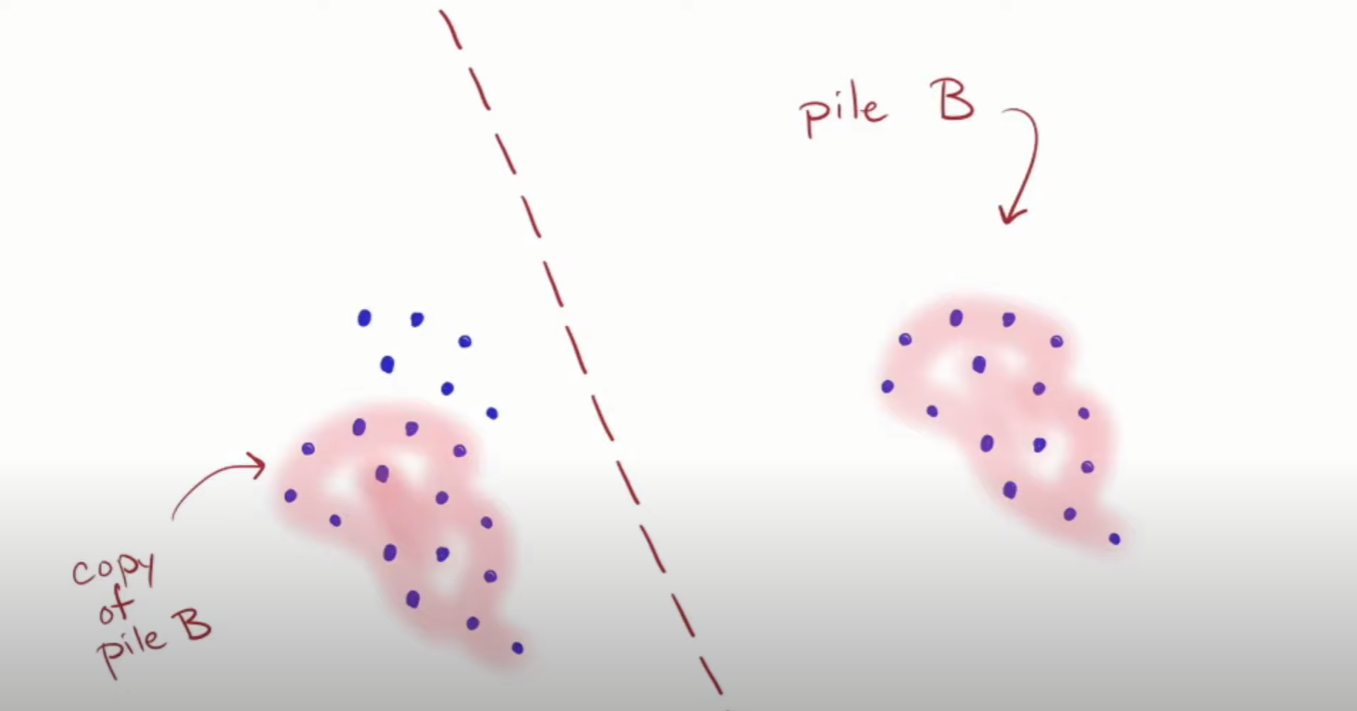 pile B
copy
of
pile B